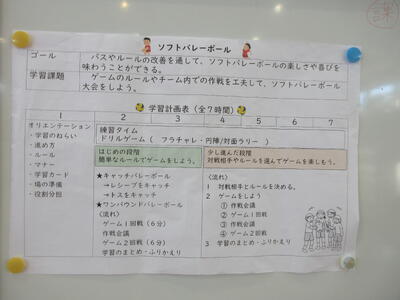 ソフトバレーボール
ゴール パスやルールの改善を通して、ソフトバレーボールの楽しさや喜びを
味わうことができる。
学習課題 ゲームのルールやチーム内での作戦を工夫して、ソフトバレーボール
大会をしよう。
学習計画表(全7時間)
1 2 3 4 5 6 7
オリエンテーション
・学習のねらい
・進め方
・ルール
・マナー
・学習カード
・場の準備
・役割分担
練習タイム
ドリルゲーム( フラチャレ・円陣/対面ラリー )
はじめの段階
簡単なルールでゲームをしよう。
★キャッチバレーボール
→レシーブをキャッチ
→トスをキャッチ
★ワンバウンドバレーボール
〈流れ〉
ゲーム1回戦(6分)
作戦会議
ゲーム2回戦(6分)
学習のまとめ・ふりかえり
少し進んだ段階
対戦相手やルールを選んでゲームを楽しもう。
〈流れ〉
1 対戦相手とルールを決める。
2 ゲームをしよう
① 作戦会議
② ゲーム1回戦
③ 作戦会議
④ ゲーム2回戦
3 学習のまとめ・ふりかえり